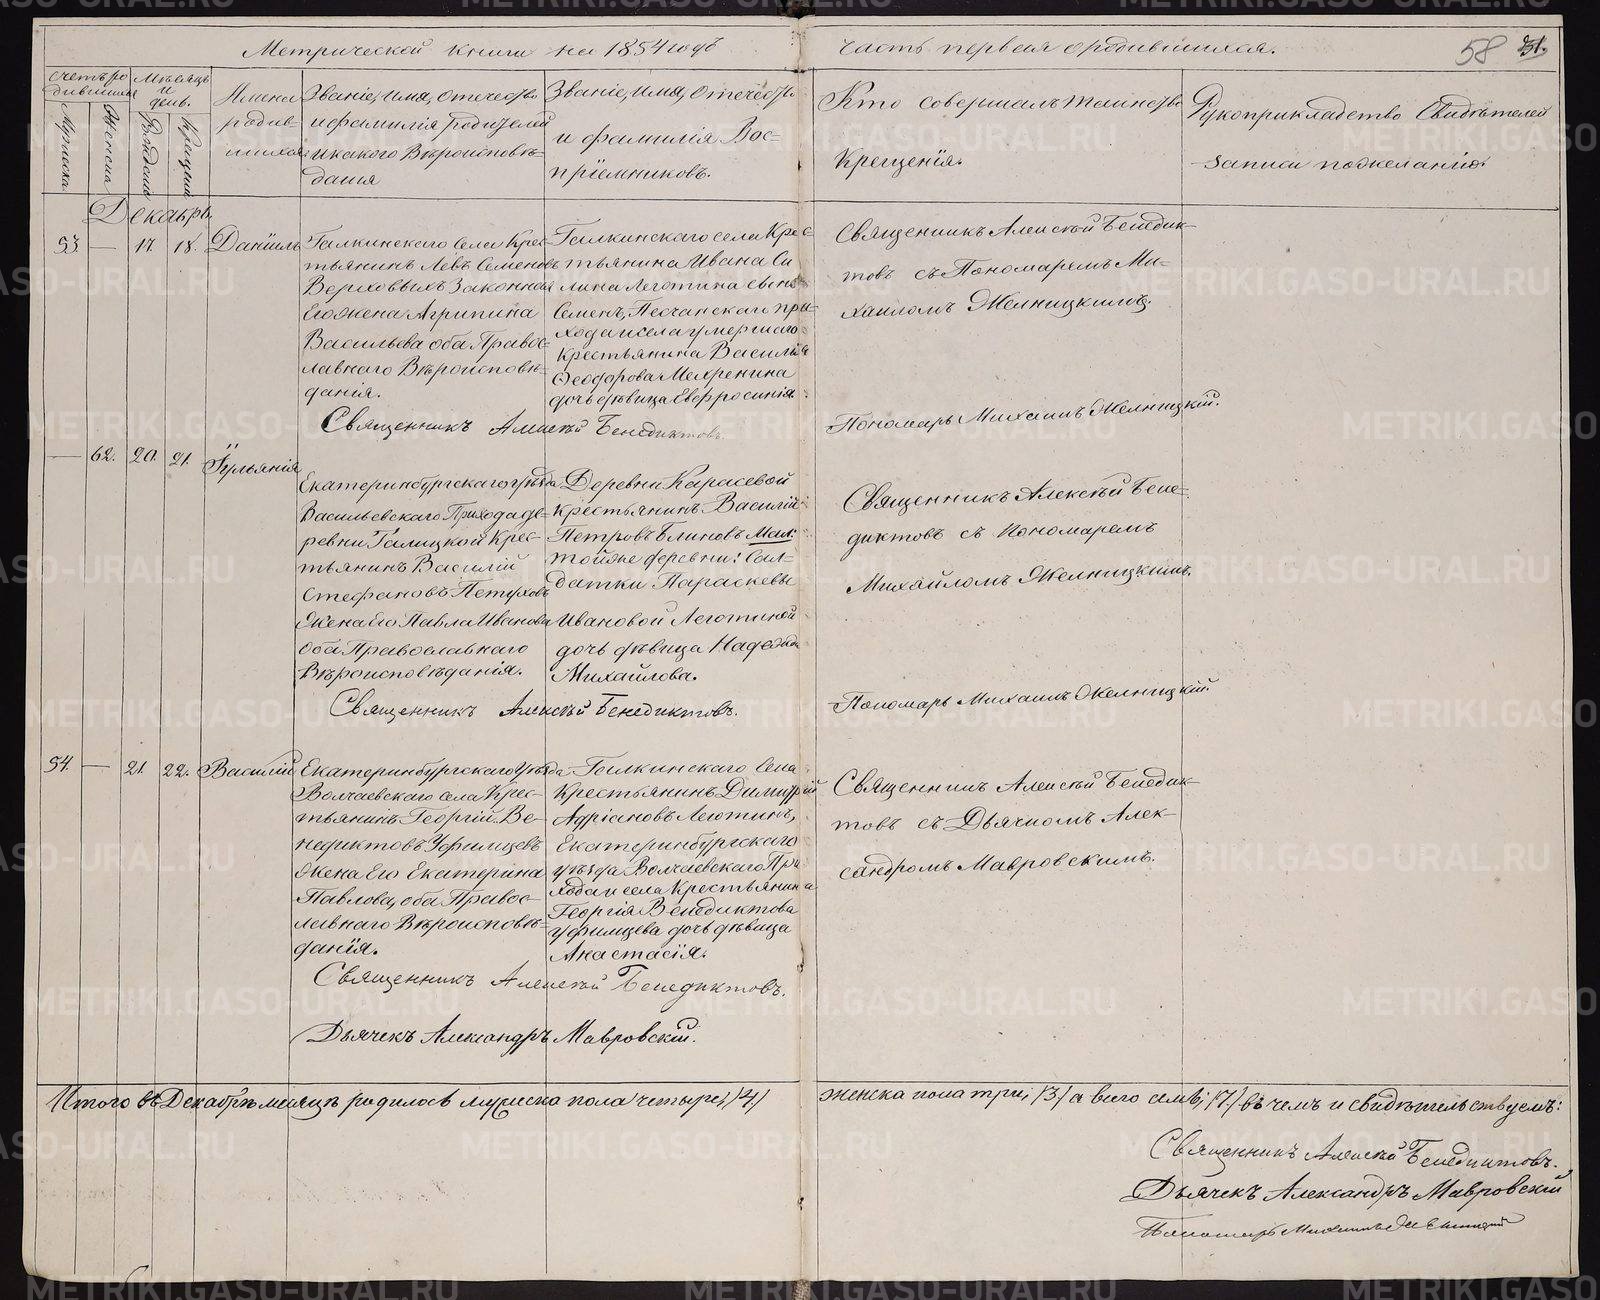 Метрической книги на 1854 годъ
часть первая о родившихся.
58 51.
Счетъ ро
дившихся
Мужеска.
Женска
Мѣсяцъ
и
день.
Рожденія
Крещенія
Имена
родив-
шихся
Званіе, имя, отечество
и фамилія родителей
и какого Вѣроисповѣ-
данія
Званіе, имя, отечество
и фамилія Вос-
пріемниковъ.
Кто совершалъ таинство
Крещенія.
Рукоприкладство Свидѣтелей
записи по желанію.
Декабрь
53. — 17. 18. Даніилъ
Галкинскаго села Крес-
тьянинъ Левъ Семеновъ
Верховыхъ Законная
Его жена Агрипина
Васильева оба Правос-
лавнаго Вѣроисповѣ-
данія.
Галкинскаго села Крес-
тьянина Ивана Си
лина Леготина сынъ
Семенъ, Песчанскаго при-
хода и села умершаго
крестьянина Василія
Феодорова Мехренина
дочь дѣвица Евфросинія.
Священникъ Алексѣй Бенедик-
товъ съ Пономаремъ Ми-
хаиломъ Желницкимъ.
Священникъ Алексѣй Бенедиктовъ.
Пономарь Михаилъ Желницкій.
— 62. 20. 21. Іуліанія
Екатеринбургскаго уѣзда
Васильевскаго Прихода де-
ревни Галицкой Крес-
тьянинъ Василій
Стефановъ Петуховъ
Жена Его Павла Иванова
Оба Православнаго
Вѣроисповѣданія.
Деревни Карасевой
крестьянинъ Василій
Петровъ Блиновъ
той же деревни: Сол-
датки Параскевы
Ивановой Леготиной
дочь дѣвица Надежда
Михайлова.
Священникъ Алексѣй Бене-
диктовъ съ Пономаремъ
Михайломъ Желницкимъ.
Священникъ Алексѣй Бенедиктовъ.
Пономарь Михаилъ Желницкій.
54. — 21. 22. Василій
Екатеринбургскаго Уѣзда
Волчаевскаго села Крес-
тьянинъ Георгій Ве-
недиктовъ Уфимцевъ
Жена Его Екатерина
Павлова, оба Правос-
лавнаго Вѣроисповѣ-
данія.
Галкинскаго Села
Крестьянинъ Димитрій
Адріановъ Леготинъ,
Екатеринбургскаго
уѣзда Волчаевскаго При
хода и села Крестьянина
Георгія Венедиктова
Уфимцева дочь дѣвица
Анастасія.
Священникъ Алексѣй Бенедик-
товъ съ Дьячкомъ Алек-
сандромъ Мавровскимъ.
Священникъ Алексѣй Бенедиктовъ.
Дьячекъ Александръ Мавровскій.
Итого въ Декабрѣ мѣсяцѣ родилось мужеска пола четыре, /4/
женска пола три, /3/ а всего семь; /7/ въ чемъ и свидѣтельствуемъ:
Священникъ Алексѣй Бенедиктовъ.
Дьячекъ Александръ Мавровскій
Пономарь Михаилъ Желницкій